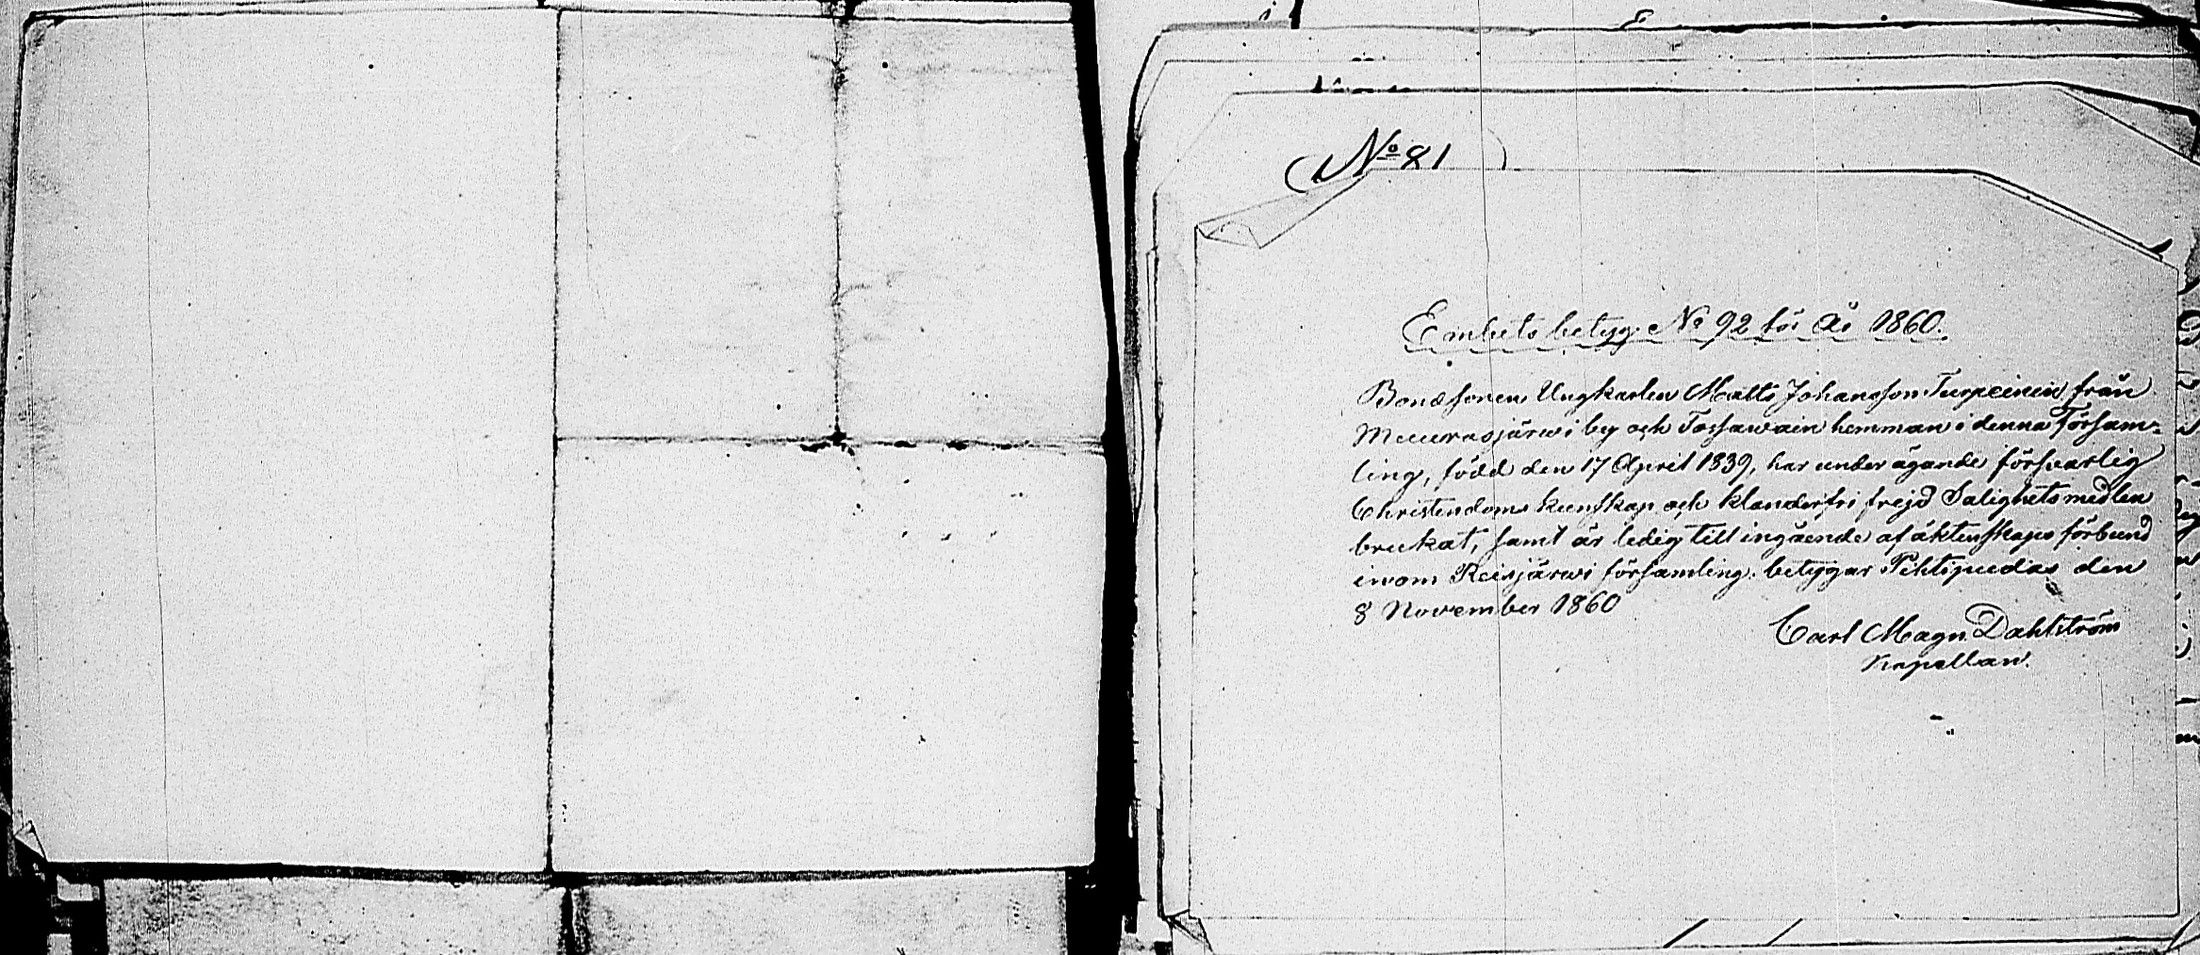 No 81
Embets betyg No 92 för År 1860.
Bondesonen Ungkarlen Matts Johansson Turpeinen från
Muurasjärwi by och Tossawain hemman i denna Försam=
ling, född den 17 April 1839, har under ägande försvarlig
Christendoms kunskap och klanderfri frejd Salighetsmedlen
brukat, samt är ledig till ingående af äktenskaps förbund
inom Reisjärwi församling. betygar Pihtipudas den
8 November 1860
Carl Magn Dahlström
Kapellan.